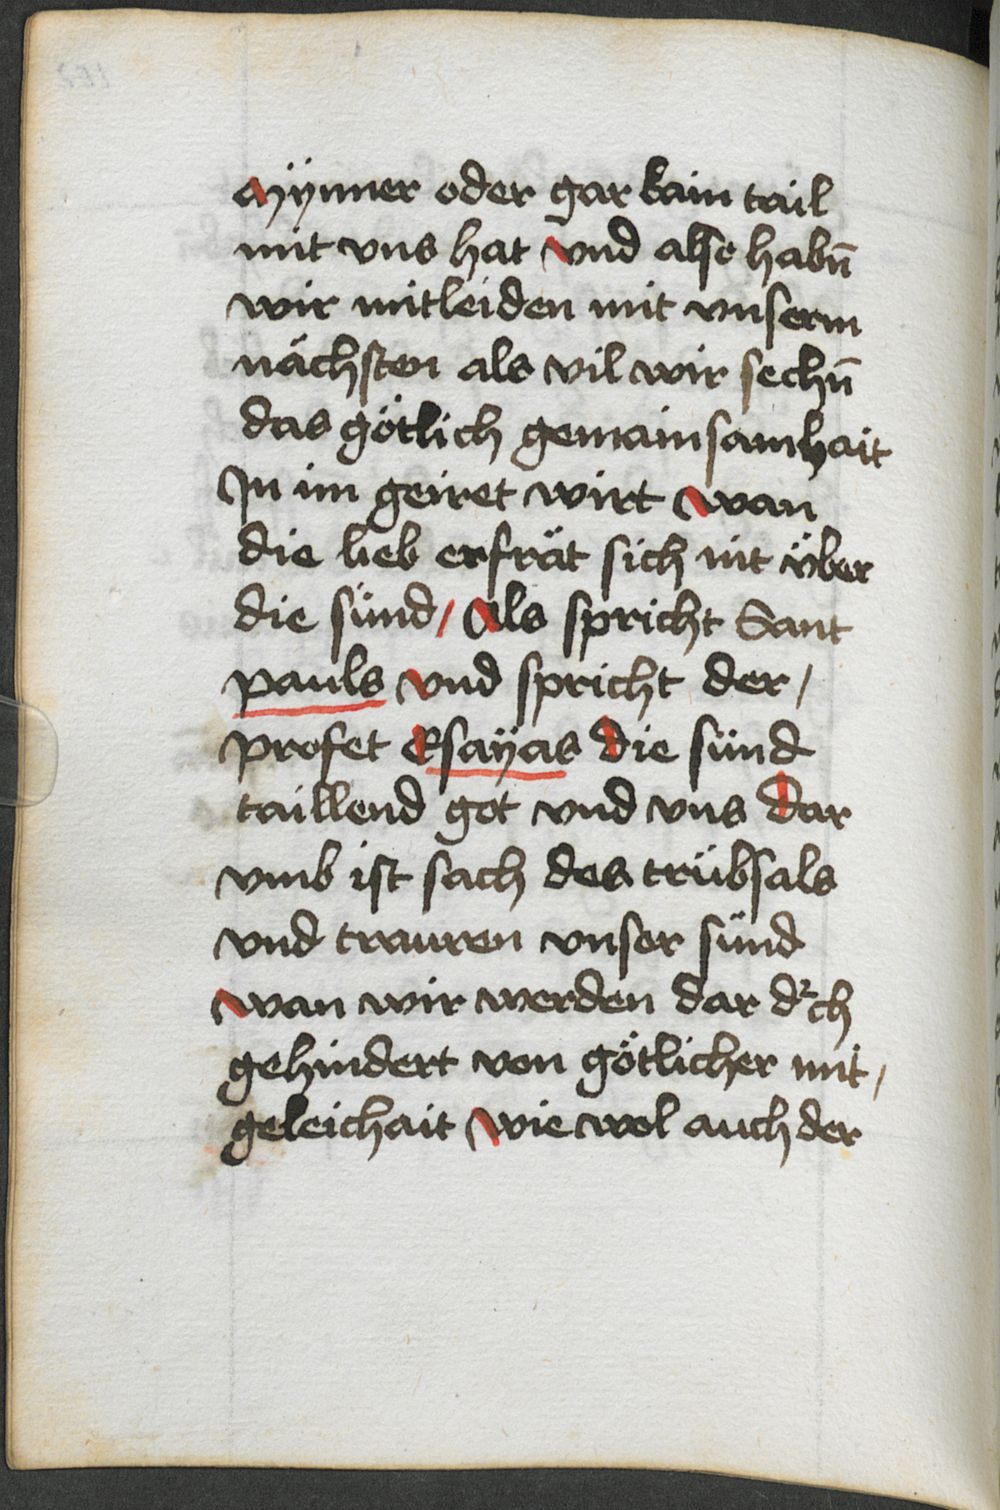 Mÿnner oder gar kain tail
mit vns hat vnd also habn̄
wir mitleiden mit vnserm
nächsten als vil wir sechn̄
das götlich gemainsamhait
Jn im geiret wirt wan
die lieb erfrät sich nit über
die sünd / Als spricht Sant
pauls vnd spricht der /
profet Esayas die sünd
taillend got vnd vns dar
vmb ist sach des trübsals
vnd trauren vnser sünd
wan wir werden dar d²ch
gehindert von götlicher mit /
geleichait wie wol auch der